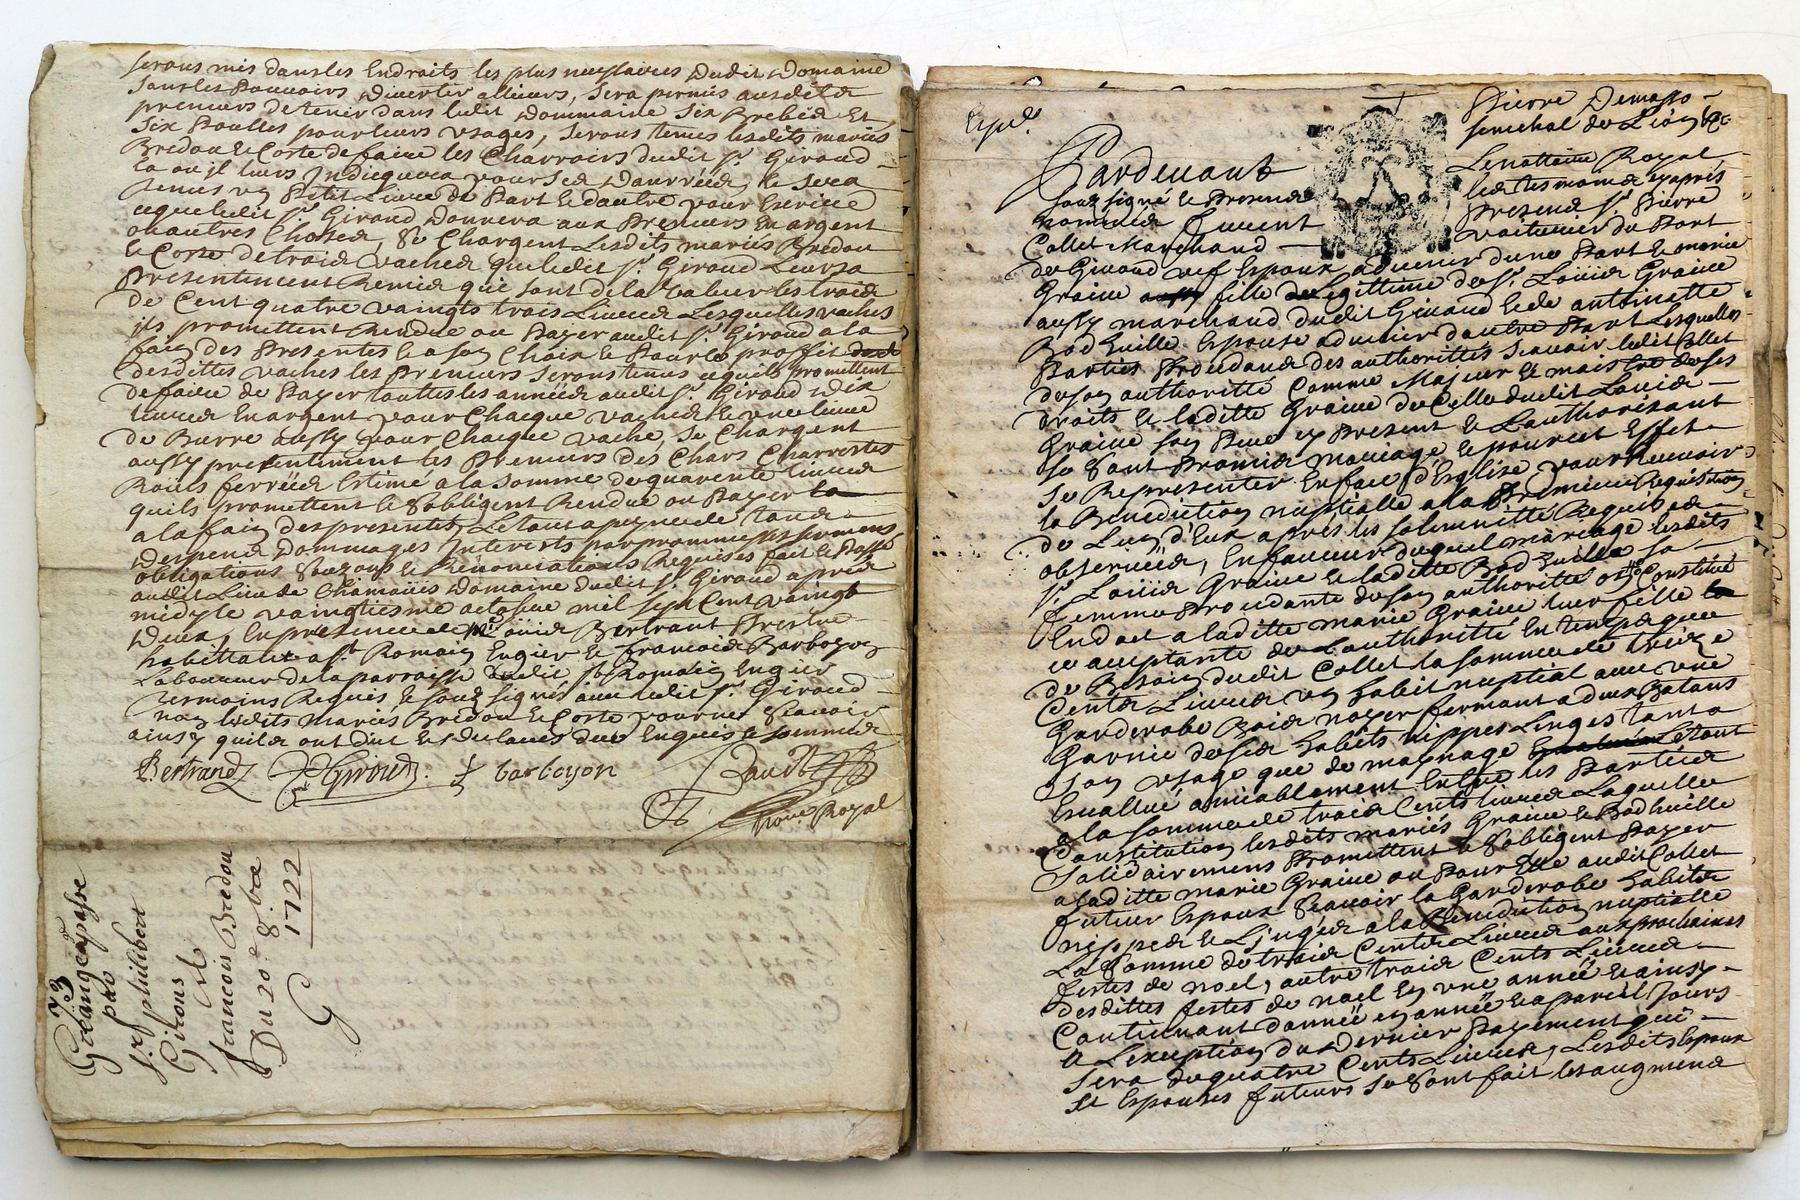 serons mis dans les Endroits les plus necessaires dudit Domaine
sans les Pouvoirs divertir allieurs, sera permis ausdits
preneurs de tenir dans ledit dommaine six Brebis Et
six Poulles pour leurs usages, serons tenus lesdits mariés
Bredon & Coste de faire les Charroirs dudit sr. Giroud
la ou il leurs Indiquera
aux Preneurs En argent
ou autres Choses, Se Chargent Lesdits mariés Bredon
& Coste de trois vaches que ledit sr. Giroud Leurs a
Presentement Remis que sont de la valeur les trois
de Cent quatre vaingts trois Livres Lesquelles vaches
ils promettent Rendre ou Payer audit sr. Giroud a la
fain des Presentes & a son Choix & Pour le proffit
desdittes vaches les Preneurs serons tenus
de faire de Payer touttes les années audit sr. Giroud dix
livres En argent pour Chacque vaches & une livre
de Burre aussy pour Chacque vache, se Chargent
aussy presentement les Preneurs des Chars Charrettes
Roües ferrées Estimé a la somme de quarente livres
quils promettent & S'obligent Rendre ou Payer
a la fain des presentes, Le tout a peyne de tous
Despens Dommages Interests par promesses sermens
obligations & Renonciations Requises fait & Passé
audit Lieu de Domaine dudit sr. Giroud apres
midy le vaingtiesme octobre mil sept Cent vaingt
Deux, En presence de Bertrant Prestre
habittant a st. Romain Engier & francois Barboyon
Laboureur de la parroisse dudit st. Romain Engier
Tesmoins Requis & sous signés avec ledit sr. Giroud
non lesdits mariés Bredon & Coste pour ne sçavoir
ainsy quils ont dit & declarés de ce Enquis & sommés
Bertrand Giroud barboyon
Royal
73
Grangeapasse
par
sr. philibert
Girous
francois Bredon
Du 20e. 8.bre
1722
G
Expe.
Pierre Demasso
senechal de Lion &c
Pardevant Le nottaire Royal
sous signé & Presens les tesmoins cy apres
nommés furent Presens sr. Pierre
Collet Marchand voiturier du Port
de Givord Espoux advenir d'une Part & marie
Graine fille Legittime de sr. Loüis Graine
aussy marchand dudit Givord & de antoinette
Espouse advenir d'autre Part Lesquelles
Parties Procedans des authorittés sçavoir ledit Collet
de son authoritté Comme Majeur & maistre de ses
droits & laditte Graine de Celle dudit Louis
Graine son Pere cy Present & L'authorisant
se sont Promis mariage & pour cet Effet
se Representer En face d'Eglise pour Recevoir
la Benediction nuptialle a la Premiere Requisition
de L'un d'Eux apres les solemnitté Requises
observées, En faveur duquel mariage lesdits
sr. Loüis Graine & laditte sa
femme Procedante de son authoritté ont Constitué
En dot a laditte marie Graine leur fille
acceptante de L'authoritté En temps que
de Besoin dudit Collet la somme de treize
Cents Livres un habit nuptial avec une
Garderobe Bois noyer fermant a deux Batans
Garnie de ses habits nippes Linges tant a
son usage que de maynage Le tout
Evallué amiablement Entre les Parties
a la somme de trois Cents livres Laquelle
Constitution lesdits mariés Graine &
solidairemens Promettent & S'obligent Payer
a laditte marie Graine ou Pour Elle audit Collet
futeur Espoux sçavoir la Garderobe habits
nippes & Linges a la Benediction nuptialle
La somme de trois Cents Livres aux prochaines
festes de noel, autre trois Cents Livres
desdittes festes de noel En une année & ainsy
Continuant d'année En année & a pareil jours
a L'exception du Dernier Payement qui
sera de quatre Cents Livres, Lesdits Espoux
& Espouses futeurs se sont fait les augmens